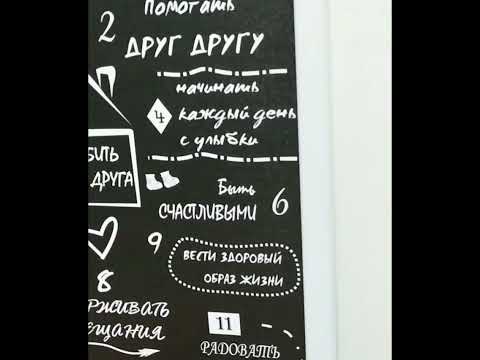 2 Помогать
ДРУГ ДРУГУ
начинать
4 каждый день
с улыбки
БИТЬ
ДРУГА
Быть
СЧАСТЛИВЫМИ 6
9
ВЕСТИ ЗДОРОВЫЙ
ОБРАЗ ЖИЗНИ
8
РЖИВАТЬ
ЕЩАНИЯ
11
РАДОВАТЬ